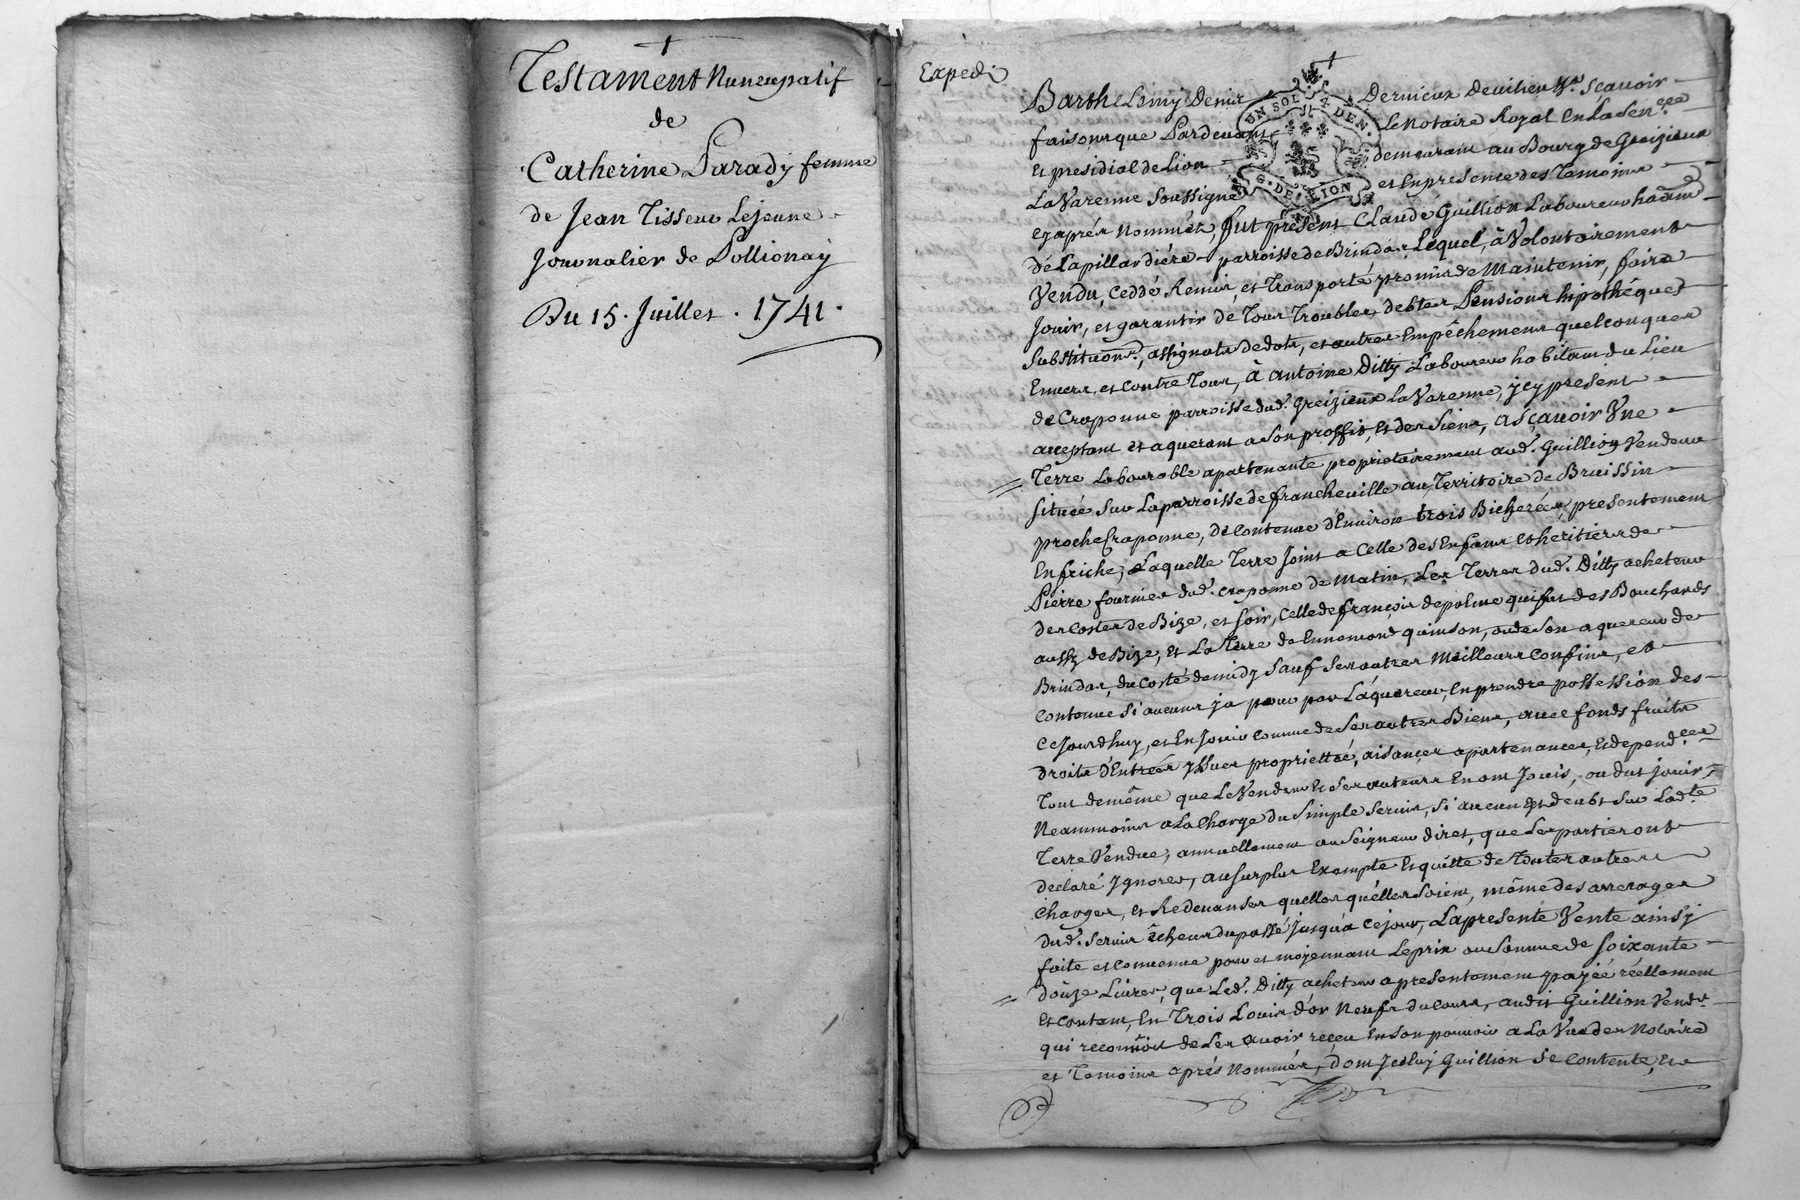 Testament Nuncupatif
de
Catherine Parady femme
de Jean Tisseur Lejeune
Journalier de Pollionay
Du 15. Juillet. 1741.
Expedié
UN SOL 4 DEN.
G. DE LION
Barthelemy Denis Dervieux Devilieu Nre. Sçavoir
faisons que Pardevant Le Notaire Royal En La Sen.cée
Et presidial de Lion demeurant au Bourg de Greizieux
La Varenne soussigné et En presence des Temoins
cy aprés Nommés, fut présent Claude Guillion Laboureur habitant
de Lapillardiére parroisse de Brindas, Lequel, à Volontairement
Vendu, Ceddé Remis, et Transporté promis de Maintenir, faire
Jouir, et garantir de Tous Troubles, debtes Pensions hipothéques
Substituons, assignats de dots, et autres Empêchemens quelconques
Envers et contre Tous, à Antoine Ditty Laboureur habitant du Lieu
de Craponne parroisse dud. Greizieux La Varenne, jcy present
acceptant et aquerant a Son proffit, et des siens, ascavoir Une
Terre Labourable apartenante proprietairement aud. Guillion Vendeur
située Sur La parroisse de francheville au Territoire de Bruissin
proche Craponne, de Contenue d'Environ trois Bicherées, presentement
En friche, Laquelle Terre Joint a Celle des Enfans et héritiers de
Pierre fournier dud. Craponne de Matin, Les Terres dud. Ditty acheteur
des Costes de Bize, et soir, Celle de françois depalme qui fut des Bouchards
aussy de Bize, et La Terre de Ennemond quinson, ou de Son aquereur de
Brindas, du Costé de midy Sauf Ses autres Meilleurs Confins, et
Contenue Si aucuns j'a pour par L'aquereur, En prendre possession des
Cejourdhuy, et En Jouir Comme de Ses autres Biens, avec fonds fruits
droits d'Entrées yssues proprietté, aisances apartenances, et depend.ces
Tout de même que Le Vendeur et Ses auteurs En ont Jouis, ou dut jouir,
Neammoins a La Charge du Simple Servis, Si aucun Est deubt Sur Lad.te
Terre Vendue, annuellement au Seigneur direct, que Les parties ont
declaré Ignorer, au surplus Exempte Et quitte de Toutes autres
Charges, et Redevances quelles quélles Soient, même des arrerages
dud. Servis êcheus du passé Jusqu'a Ce jour, La presente Vente ainsy
faite et Convenue pour et moyennant Le prix ou Somme de soixante
douze Livres, que Led. Ditty acheteur a presentement payée réellement
Et Contant, En Trois Louis d'or Neufs du Cours, audit Guillion Vend.r
qui reconnoit de Les avoir reçeu En Son pouvoir a La Vue des Notaire
et Temoins aprés Nommés, dont Jceluy Guillion Se Contente, et